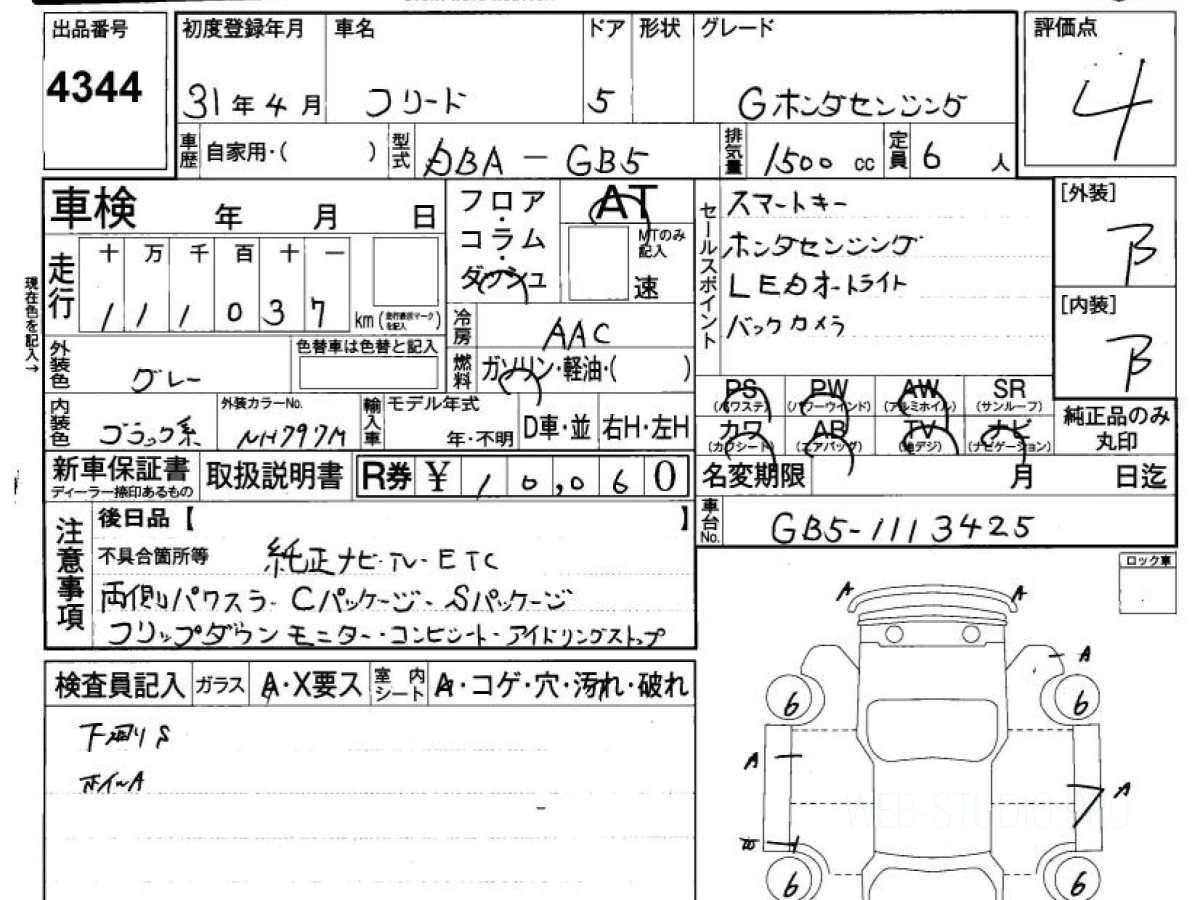 出品番号
4344
初度登録年月
31年4月
車名
フリード
ドア
5
形状
グレード
Gホンダセンシング
評価点
4
車歴
自家用・( )
型式
DBA-GB5
排気量
1500 cc
定員
6 人
車検 年 月 日
フロア・コラム・ダッシュ
AT
MTのみ記入
速
セールスポイント
スマートキー
ホンダセンシング
LEDオートライト
バックカメラ
[外装]
B
[内装]
B
現在色を記入→
走行
十 万 千 百 十 一
1 1 1 0 3 7
km
冷房
AAC
外装色
グレー
色替車は色替と記入
燃料
ガソリン・軽油・( )
PS
(パワステ)
PW
(パワーウインド)
AW
(アルミホイル)
SR
(サンルーフ)
カワ
(カワシート)
AB
(エアバッグ)
TV
(地デジ)
ナビ
(ナビゲーション)
純正品のみ
丸印
内装色
ブラック系
外装カラーNo.
NH797M
輸入車
モデル年式
年・不明
D車・並
右H・左H
新車保証書
ディーラー捺印あるもの
取扱説明書
R券 ¥ 10,060
名変期限 月 日迄
車台No.
GB5-1113425
注意事項
後日品【 】
不具合箇所等 純正ナビ・TV・ETC
両側パワスラ・Cパッケージ・Sパッケージ
フリップダウンモニター・コンビシート・アイドリングストップ
ロック車
検査員記入
ガラス
A・X要ス
室内シート
A・コゲ・穴・汚れ・破れ
下廻りS
ホイルA
A
A
A
6
6
A
A
W
6
6
WEB-STUDIO.PRO